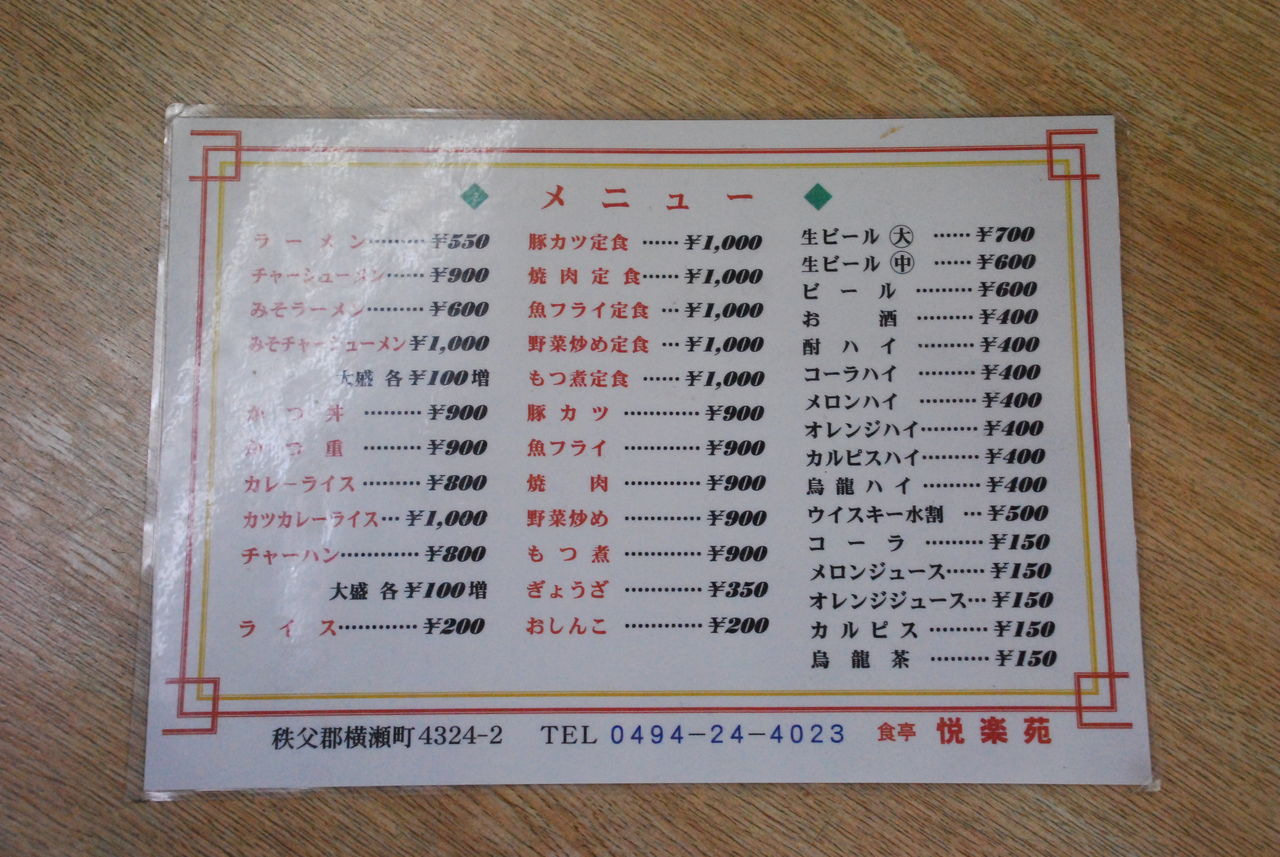 メニュー
ラーメン………¥550
チャーシューメン……¥900
みそラーメン………¥600
みそチャーシューメン¥1,000
大盛 各¥100増
かつ丼 ………¥900
かつ重 ………¥900
カレーライス………¥800
カツカレーライス…¥1,000
チャーハン…………¥800
大盛 各¥100増
ライス…………¥200
豚カツ定食 ……¥1,000
焼肉定食……¥1,000
魚フライ定食 …¥1,000
野菜炒め定食 …¥1,000
もつ煮定食 ……¥1,000
豚カツ …………¥900
魚フライ …………¥900
焼肉 …………¥900
野菜炒め …………¥900
もつ煮 …………¥900
ぎょうざ …………¥350
おしんこ …………¥200
生ビール ㊅ ……¥700
生ビール ㊥ ……¥600
ビール ………¥600
お酒 ………¥400
酎ハイ ………¥400
コーラハイ ………¥400
メロンハイ ………¥400
オレンジハイ………¥400
カルピスハイ………¥400
烏龍ハイ ………¥400
ウイスキー水割 …¥500
コーラ ………¥150
メロンジュース……¥150
オレンジジュース…¥150
カルピス ………¥150
烏龍茶 ………¥150
秩父郡横瀬町4324-2 TEL 0494-24-4023 食亭 悦楽苑